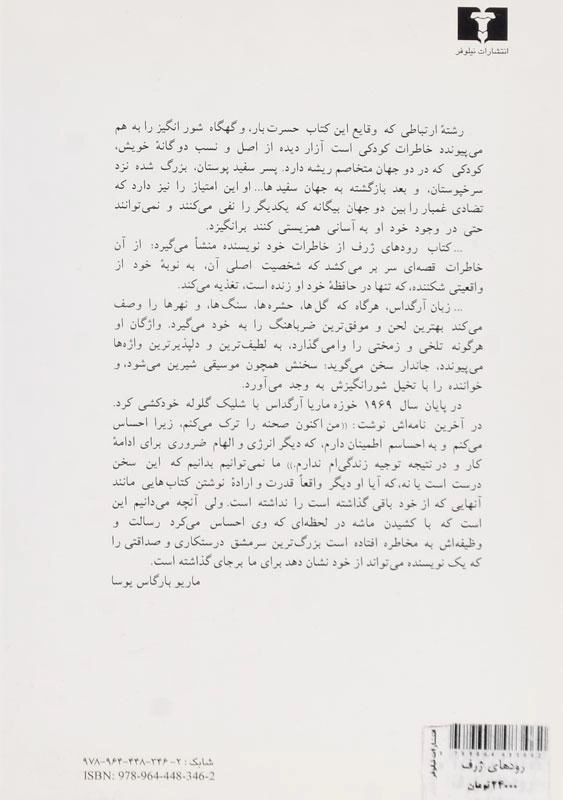 انتشارات نیلوفر
رشتهٔ ارتباطی که وقایع این کتاب حسرت بار، و گهگاه شور انگیز را به هم
می‌پیوندد خاطرات کودکی است آزار دیده از اصل و نسب دوگانهٔ خویش،
کودکی که در دو جهان متخاصم ریشه دارد. پسر سفید پوستان، بزرگ شده نزد
سرخپوستان، و بعد بازگشته به جهان سفیدها... او این امتیاز را نیز دارد که
تضادی غمبار را بین دو جهان بیگانه که یکدیگر را نفی می‌کنند و نمی‌توانند
حتی در وجود خود او به آسانی همزیستی کنند برانگیزد.
... کتاب رودهای ژرف از خاطرات خود نویسنده منشأ می‌گیرد: از آن
خاطرات قصه‌ای سر بر می‌کشد که شخصیت اصلی آن، به نوبهٔ خود از
واقعیتی شکننده، که تنها در حافظهٔ خود او زنده است، تغذیه می‌کند.
... زبان آرگداس، هرگاه که گل‌ها، حشره‌ها، سنگ‌ها، و نهرها را وصف
می‌کند بهترین لحن و موفق‌ترین ضرباهنگ را به خود می‌گیرد. واژگان او
هرگونه تلخی و زمختی را وامی‌گذارد، به لطیف‌ترین و دلپذیرترین واژه‌ها
می‌پیوندد، جاندار سخن می‌گوید: سخنش همچون موسیقی شیرین می‌شود، و
خواننده را با تخیل شورانگیزش به وجد می‌آورد.
در پایان سال ۱۹۶۹ خوزه ماریا آرگداس با شلیک گلوله خودکشی کرد.
در آخرین نامه‌اش نوشت: «من اکنون صحنه را ترک می‌کنم، زیرا احساس
می‌کنم و به احساسم اطمینان دارم، که دیگر انرژی و الهام ضروری برای ادامهٔ
کار و در نتیجه توجیه زندگی‌ام ندارم.» ما نمی‌توانیم بدانیم که این سخن
درست است یا نه، که آیا او دیگر واقعاً قدرت و ارادهٔ نوشتن کتاب‌هایی مانند
آنهایی که از خود باقی گذاشته است را نداشته است. ولی آنچه می‌دانیم این
است که با کشیدن ماشه در لحظه‌ای که وی احساس می‌کرد رسالت و
وظیفه‌اش به مخاطره افتاده است بزرگ‌ترین سرمشق درستکاری و صداقتی را
که یک نویسنده می‌تواند از خود نشان دهد برای ما برجای گذاشته است.
ماریو بارگاس یوسا
شابک: ۲-۳۴۶-۴۴۸-۹۶۴-۹۷۸
ISBN: 978-964-448-346-2
انتشارات نیلوفر
رودهای ژرف
۲۴۰۰۰ تومان